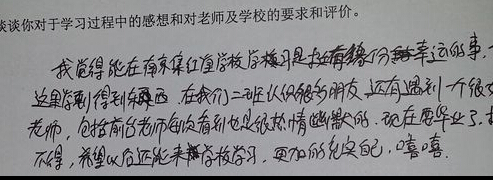 谈谈你对于学习过程中的感想和对老师及学校的要求和评价。
我觉得能在南京某红星学校学习是十分幸运的事,
这里学到得到东西 在我们二班认识很多朋友,还有遇到一个很好
老师,包括前台老师每次看到也是很热情幽默的.现在愿毕业了,
不得,希望以后还能来学校学习,更加的充实自己.嘻嘻.